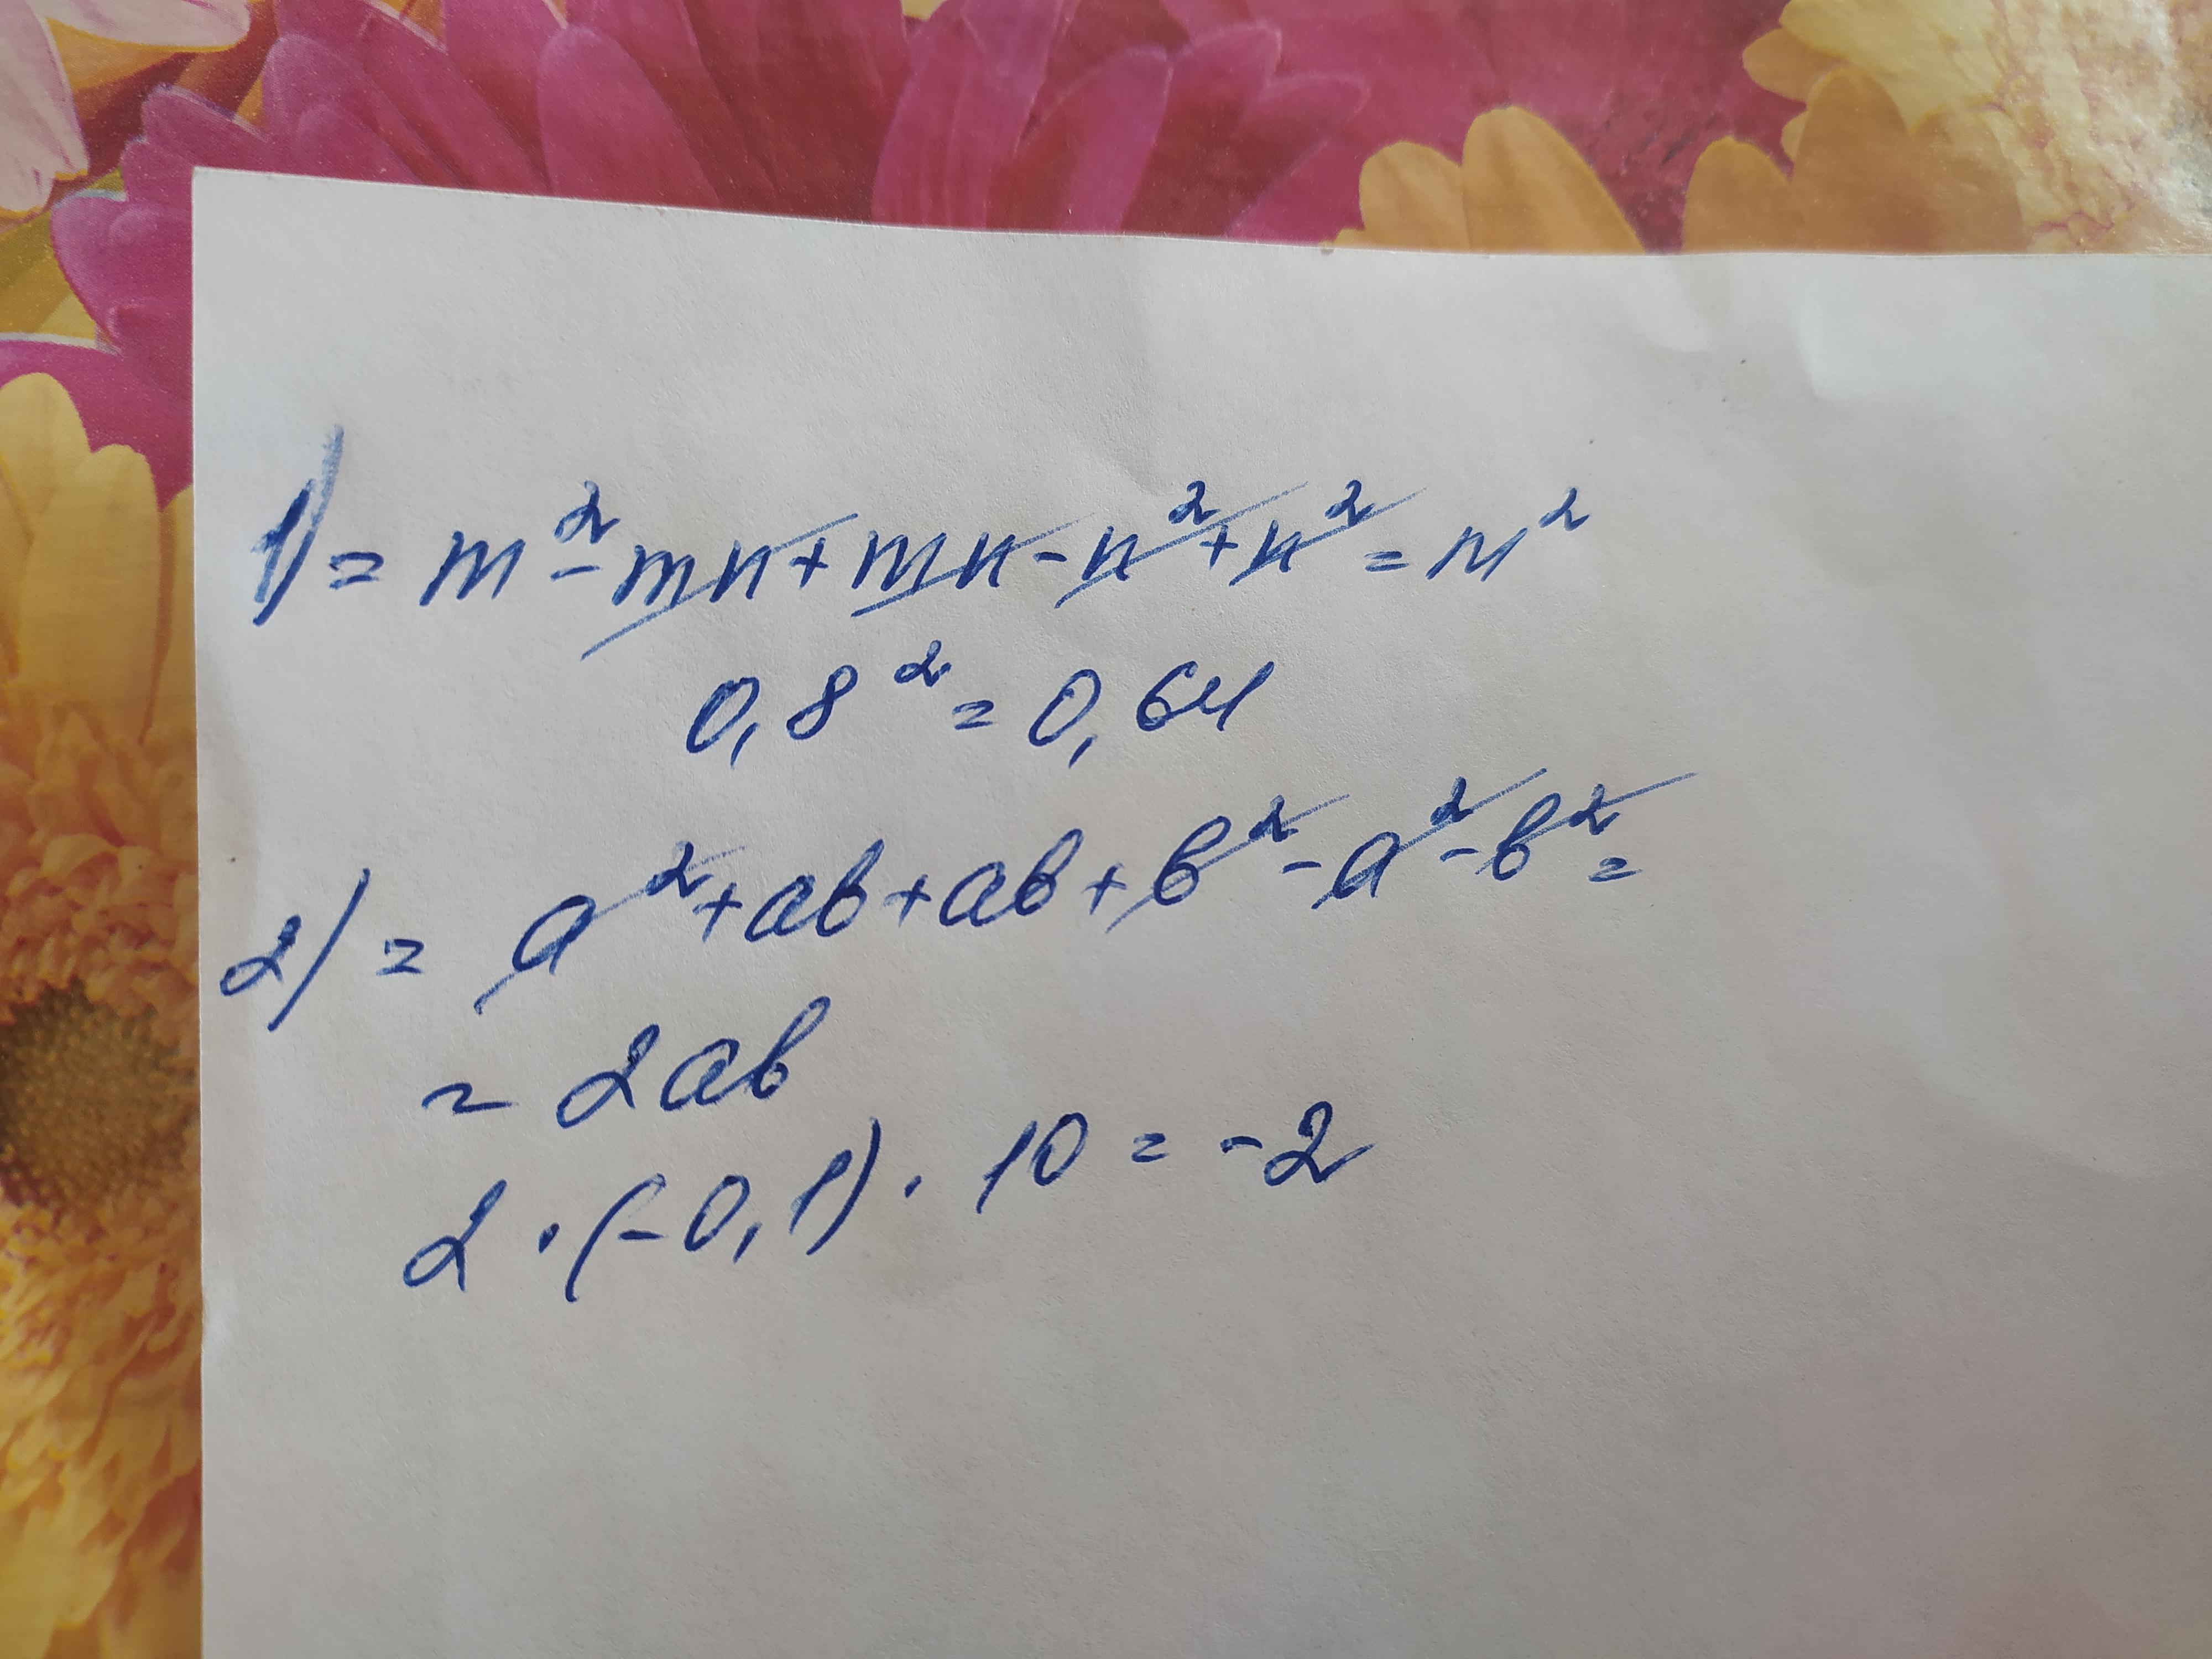 1) = m² - mn + mn - n² + n² = m²
0,8² = 0,64
2) = a² + ab + ab + b² - a² - b² =
= 2ab
2 · (-0,1) · 10 = -2